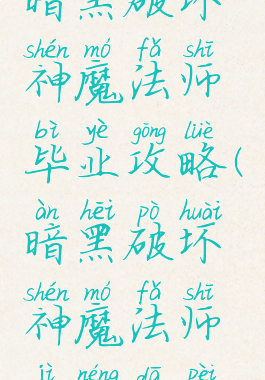 暗黑破坏
shén mó fǎ shī
神魔法师
bì yè gōng lüè
毕业攻略(
àn hēi pò huài
暗黑破坏
shén mó fǎ shī
神魔法师
jì néng dā pèi